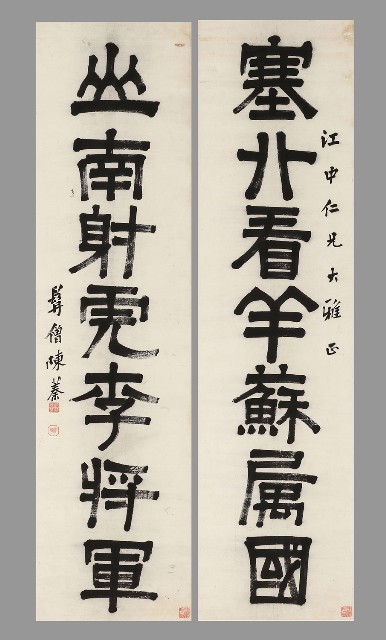 江中仁兄大雅正
塞北看羊蘇属國
山南射虎李将軍
髯僧陳蓁